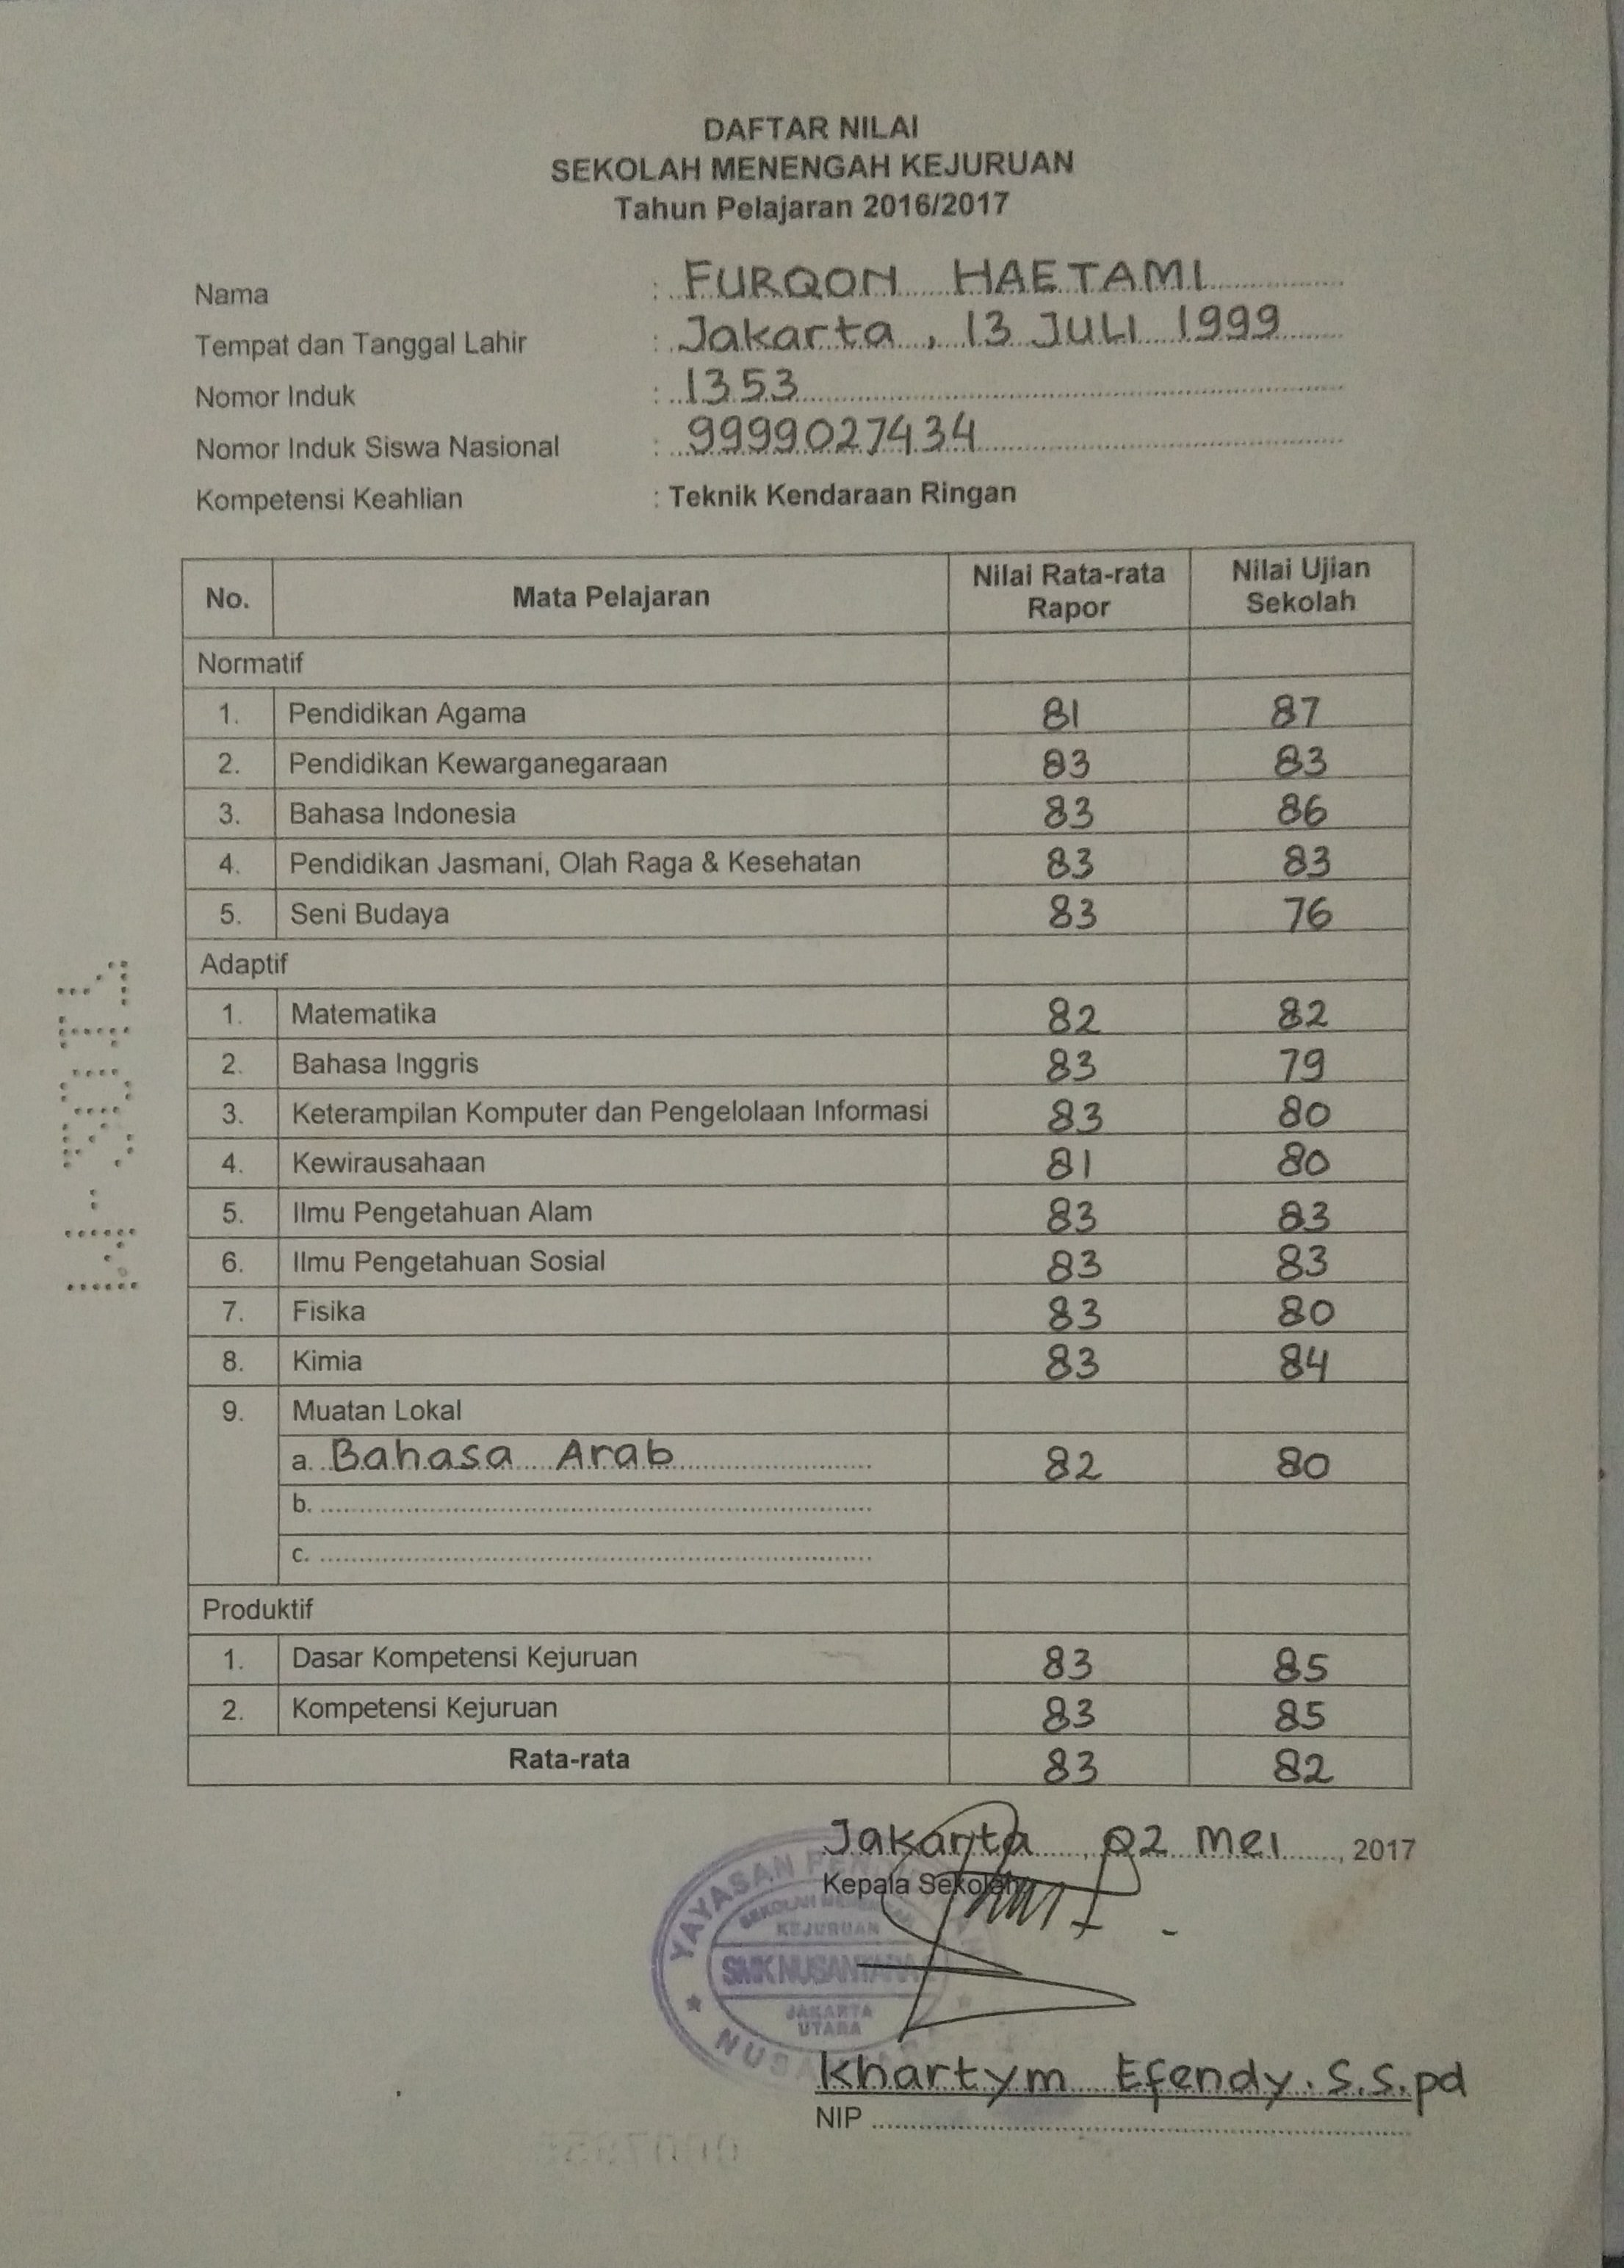 DAFTAR NILAI
SEKOLAH MENENGAH KEJURUAN
Tahun Pelajaran 2016/2017
Nama : FURQON HAETAMI
Tempat dan Tanggal Lahir : Jakarta, 13 JULI 1999
Nomor Induk : 1353
Nomor Induk Siswa Nasional : 9999027434
Kompetensi Keahlian : Teknik Kendaraan Ringan
No. Mata Pelajaran Nilai Rata-rata Rapor Nilai Ujian Sekolah
Normatif
1. Pendidikan Agama 81 87
2. Pendidikan Kewarganegaraan 83 83
3. Bahasa Indonesia 83 86
4. Pendidikan Jasmani, Olah Raga & Kesehatan 83 83
5. Seni Budaya 83 76
Adaptif
1. Matematika 82 82
2. Bahasa Inggris 83 79
3. Keterampilan Komputer dan Pengelolaan Informasi 83 80
4. Kewirausahaan 81 80
5. Ilmu Pengetahuan Alam 83 83
6. Ilmu Pengetahuan Sosial 83 83
7. Fisika 83 80
8. Kimia 83 84
9. Muatan Lokal
a. Bahasa Arab 82 80
b.
c.
Produktif
1. Dasar Kompetensi Kejuruan 83 85
2. Kompetensi Kejuruan 83 85
Rata-rata 83 82
Jakarta, 02 Mei, 2017
Kepala Sekolah
YAYASAN
SEKOLAH
KEJURUAN
SMK NUSANTARA
JAKARTA
UTARA
Khartym Efendy. S.S.pd
NIP